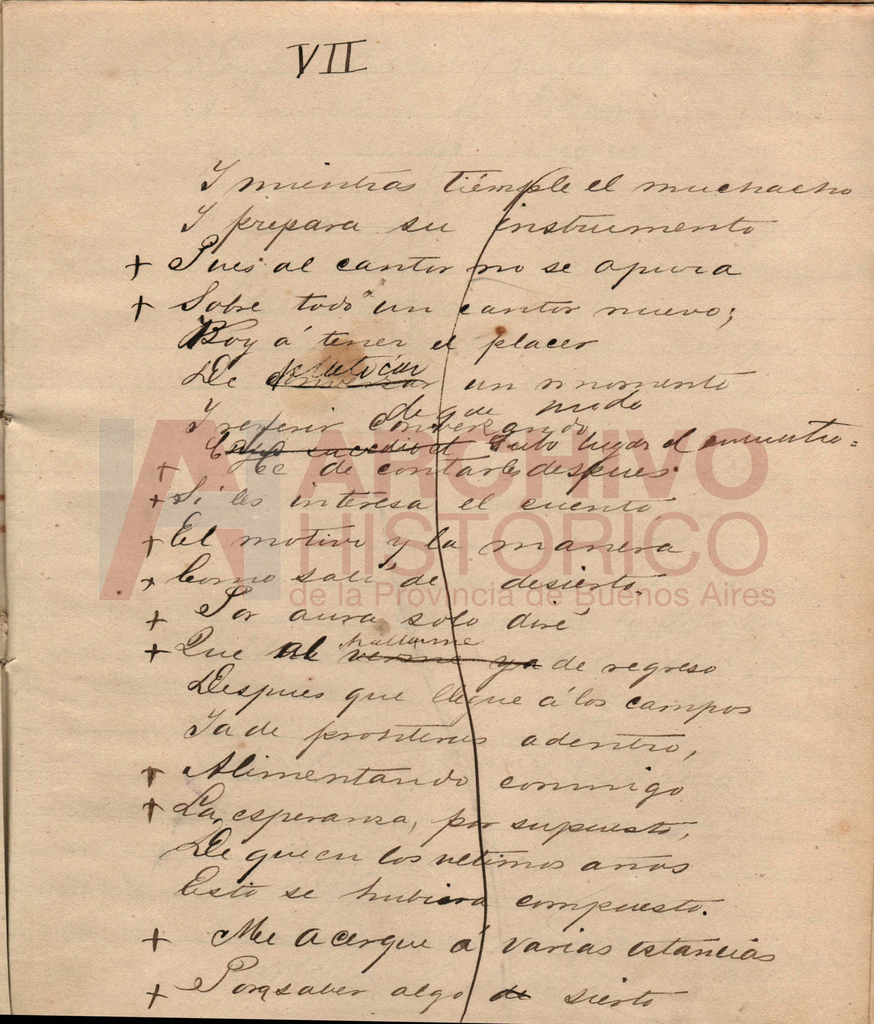 VII
Y mientras tiemple el muchacho
Y prepara su instrumento
+ Pues al cantor no se apura
+ Sobre todo un cantor nuevo;
Voy á tener el placer
De conversar platicar un momento
de que modo
Y referir conversando
sucedió el tubo lugar el encuentro =
+ He de contarles despues
+ Si les interesa el cuento
+ El motivo y la manera
+ Como salí de desierto.
+ Por aura solo diré
hallarme
+ Que al verme ya de regreso
Despues que llegue á los campos
Ya de fronteras adentro,
+ Alimentando conmigo
+ La esperanza, por supuesto,
De que en los ultimos años
Esto se hubiera compuesto.
+ Me acerque á varias estancias
+ Para saber algo de sierto
ARCHIVO
HISTORICO
de la Provincia de Buenos Aires